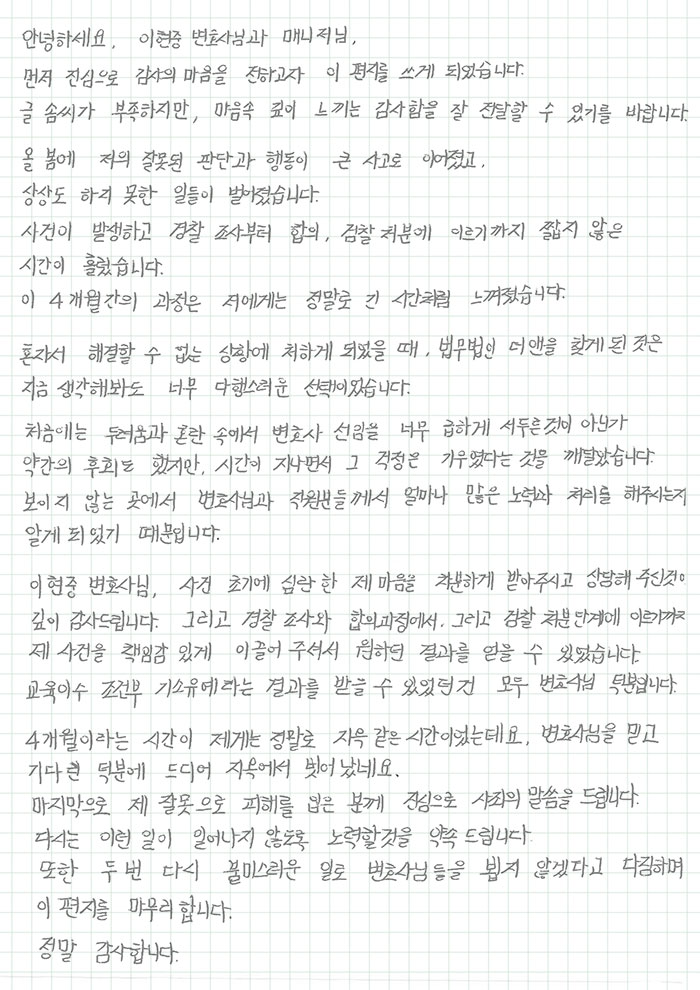 안녕하세요, 이현중 변호사님과 매니저님,
먼저 진심으로 감사의 마음을 전하고자 이 편지를 쓰게 되었습니다.
글 솜씨가 부족하지만, 마음속 깊이 느끼는 감사함을 잘 전달할 수 있기를 바랍니다.
올 봄에 저의 잘못된 판단과 행동이 큰 사고로 이어졌고,
상상도 하지 못한 일들이 벌어졌습니다.
사건이 발생하고 경찰 조사부터 합의, 검찰 처분에 이르기까지 짧지 않은
시간이 흘렀습니다.
이 4개월간의 과정은 저에게는 정말로 긴 시간처럼 느껴졌습니다.
혼자서 해결할 수 없는 상황에 처하게 되었을 때, 법무법인 더앤을 찾게 된 것은
지금 생각해봐도 너무 다행스러운 선택이었습니다.
처음에는 두려움과 혼란 속에서 변호사 선임을 너무 급하게 서두른것이 아닌가
약간의 후회도 했지만, 시간이 지나면서 그 걱정은 기우였다는 것을 깨달았습니다.
보이지 않는 곳에서 변호사님과 직원분들께서 얼마나 많은 노력과 처리를 해주시는지
알게 되었기 때문입니다.
이현중 변호사님, 사건 초기에 심란 한 제 마음을 차분하게 받아주시고 상담해 주신것이
깊이 감사드립니다. 그리고 경찰 조사와 합의과정에서, 그리고 검찰 처분단계에 이르기까지
제 사건을 책임감 있게 이끌어 주셔서 원하던 결과를 얻을 수 있었습니다.
교육이수 조건부 기소유예라는 결과를 받을 수 있었던건 모두 변호사님 덕분입니다.
4개월이라는 시간이 제게는 정말로 지옥 같은 시간이었는데요, 변호사님을 믿고
기다린 덕분에 드디어 지옥에서 벗어났네요.
마지막으로 제 잘못으로 피해를 입은 분께 진심으로 사죄의 말씀을 드립니다.
다시는 이런 일이 일어나지 않도록 노력할것을 약속 드립니다.
또한 두번 다시 불미스러운 일로 변호사님들을 뵙지 않겠다고 다짐하며
이 편지를 마무리합니다.
정말 감사합니다.